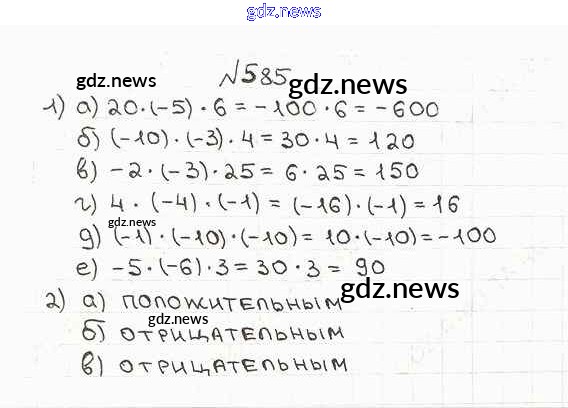 gdz.news
№585
gdz.news
gdz.news
1) а) 20·(-5)·6=-100·6=-600
б) (-10)·(-3)·4=30·4=120
в) -2·(-3)·25=6·25=150
г) 4·(-4)·(-1)=(-16)·(-1)=16
gdz.news
д) (-1)·(-10)·(-10)=10·(-10)=-100
е) -5·(-6)·3=30·3=90
2) а) положительным
gdz.news
gdz.news
б) отрицательным
в) отрицательным